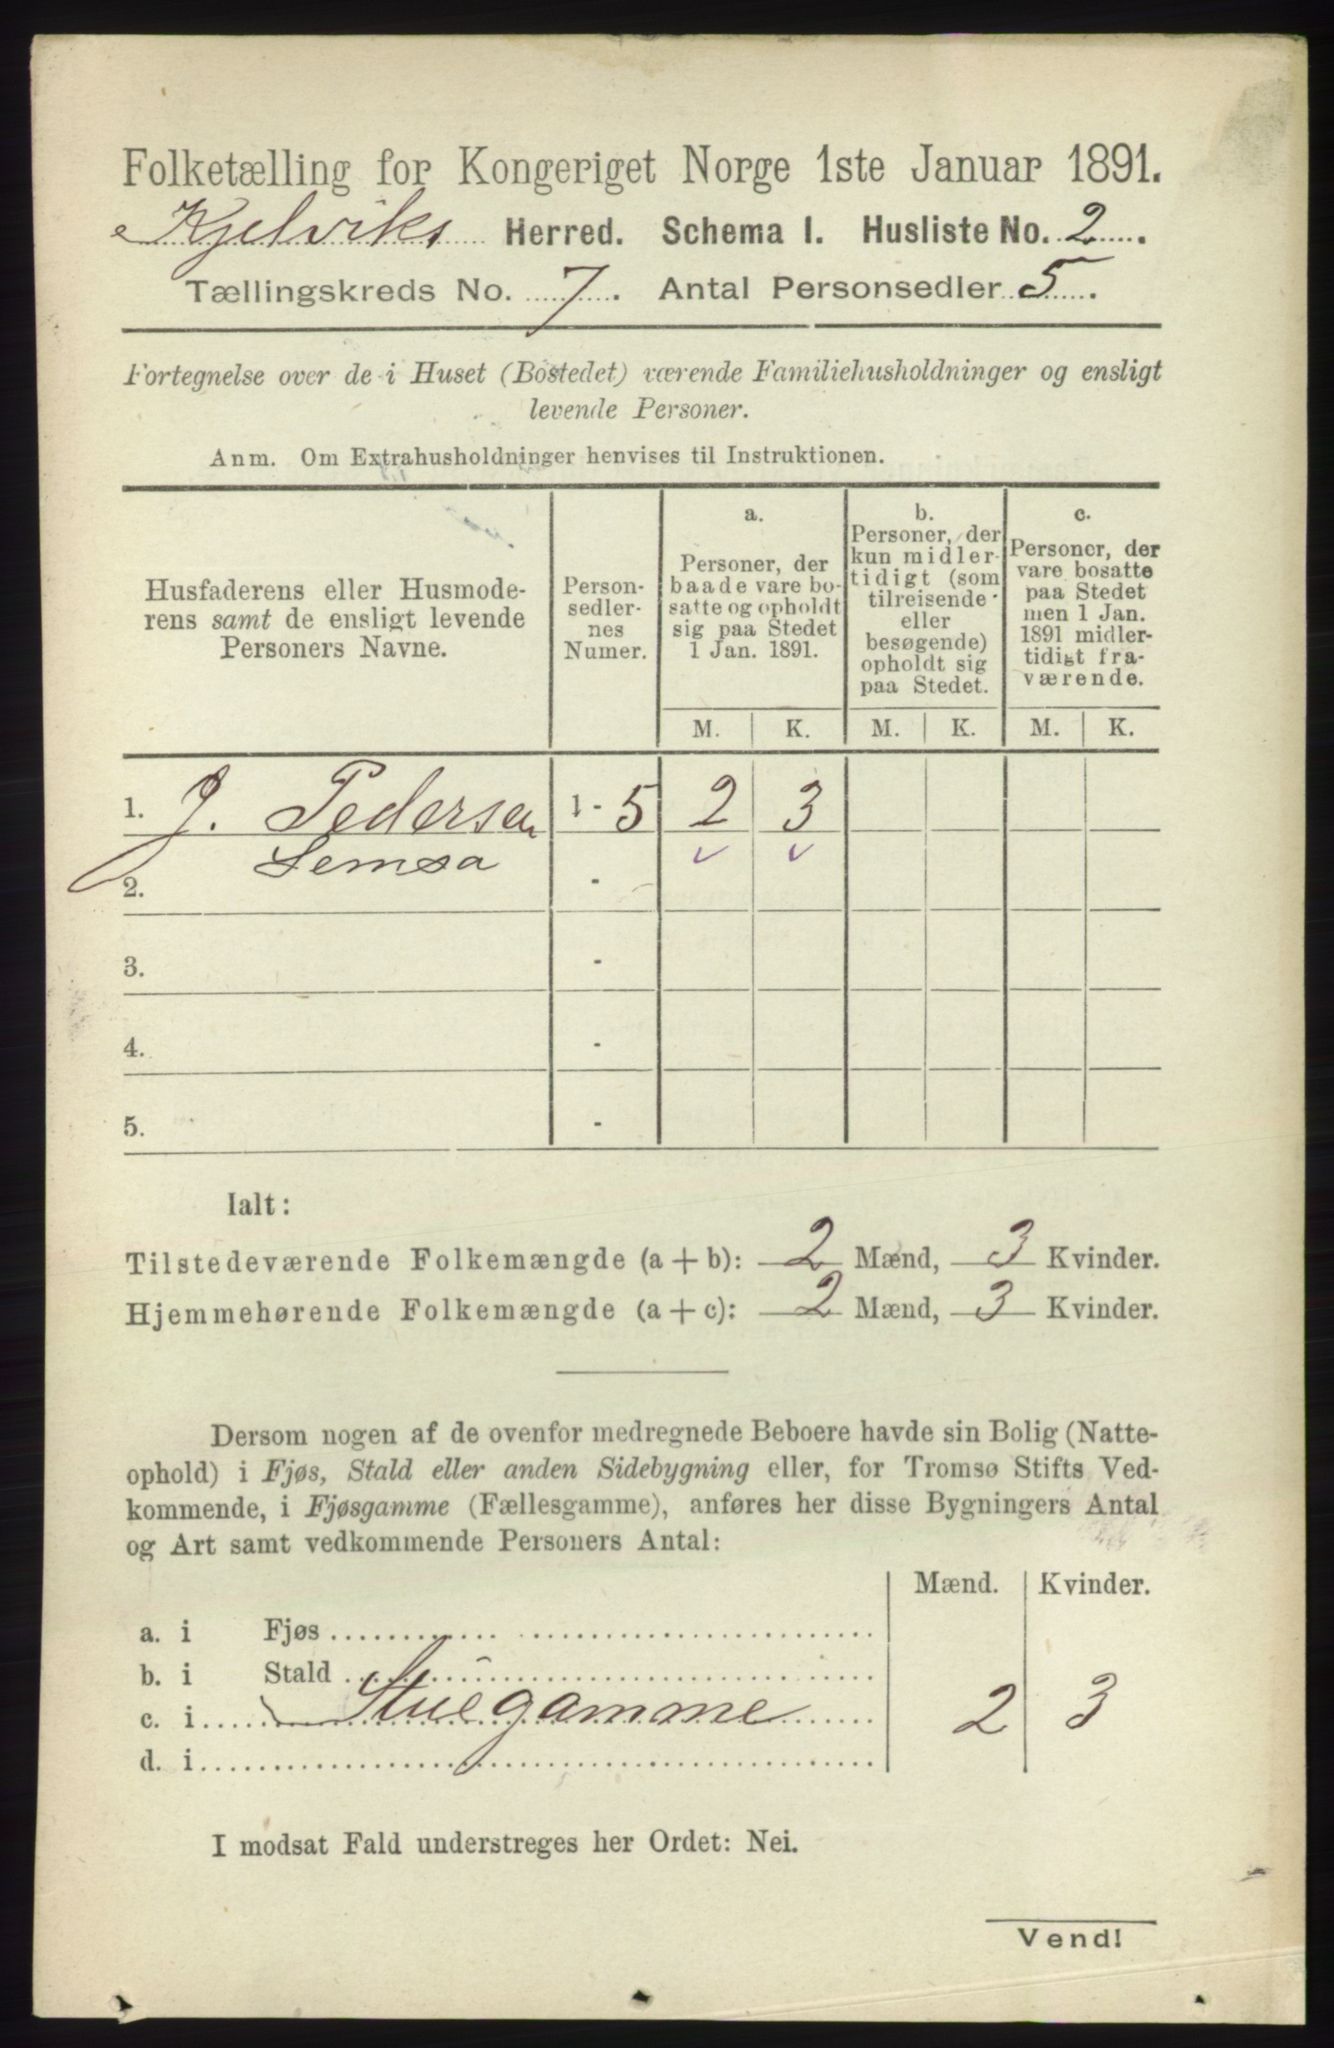 Folketælling for Kongeriget Norge 1ste Januar 1891.
Kjelviks Herred. Schema I. Husliste No. 2
Tællingskreds No. 7. Antal Personsedler 5.
Fortegnelse over de i Huset (Bostedet) værende Familiehusholdninger og ensligt
levende Personer.
Anm. Om Extrahusholdninger henvises til Instruktionen.
Husfaderens eller Husmode-
rens samt de ensligt levende
Personers Navne.
Person-
sedler-
nes
Numer.
a.
Personer, der
baade vare bo-
satte og opholdt
sig paa Stedet
1 Jan. 1891.
b.
Personer, der
kun midler-
tidigt (som
tilreisende
eller
besøgende)
opholdt sig
paa Stedet.
c.
Personer, der
vare bosatte
paa Stedet
men 1 Jan.
1891 midler-
tidigt fra-
værende.
M. K. M. K. M. K.
1. J. Pedersen 1 - 5 2 3
Semsa
2. -
3. -
4. -
5. -
Ialt:
Tilstedeværende Folkemængde (a + b): 2 Mænd, 3 Kvinder.
Hjemmehørende Folkemængde (a + c): 2 Mænd, 3 Kvinder.
Dersom nogen af de ovenfor medregnede Beboere havde sin Bolig (Natte-
ophold) i Fjøs, Stald eller anden Sidebygning eller, for Tromsø Stifts Ved-
kommende, i Fjøsgamme (Fællesgamme), anføres her disse Bygningers Antal
og Art samt vedkommende Personers Antal:
Mænd. Kvinder.
a. i Fjøs
b. i Stald
c. i Stuegamme 2 3
d. i
I modsat Fald understreges her Ordet: Nei.
Vend!